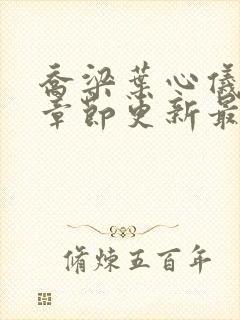 乔梁叶心仪
章节更新最
脩炼五百年